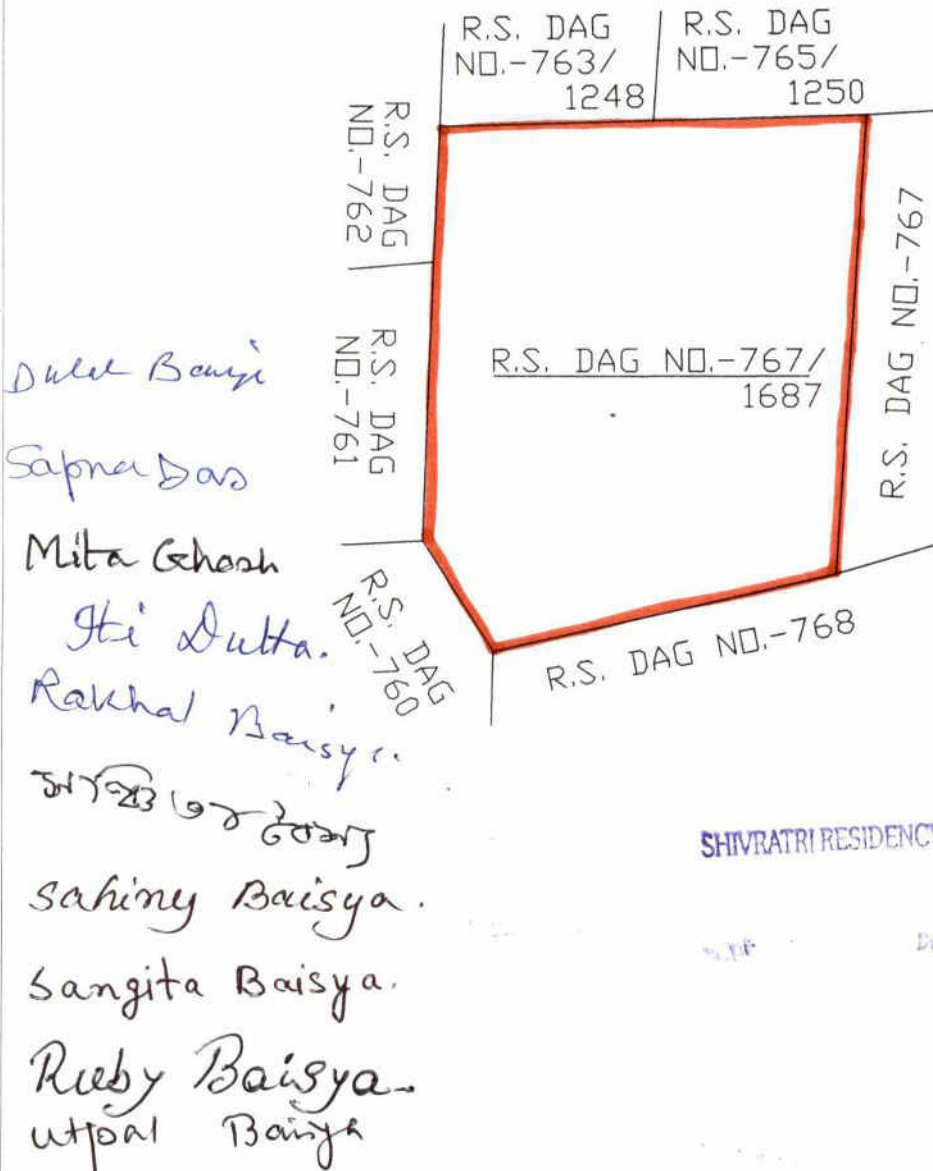 R.S. DAG
NO.-763/
1248
R.S. DAG
NO.-765/
1250
R.S. DAG
NO.-762
R.S. DAG
NO.-761
R.S. DAG NO.-767/
1687
R.S. DAG NO.-767
R.S. DAG
NO.-760
R.S. DAG NO.-768
Sapna Das
Mita Ghosh
Iti Dutta.
Rakhal
Sahiny Baisya.
Sangita Baisya.
Ruby Baisya
Utpal
SHIVRATRI RESIDENCY